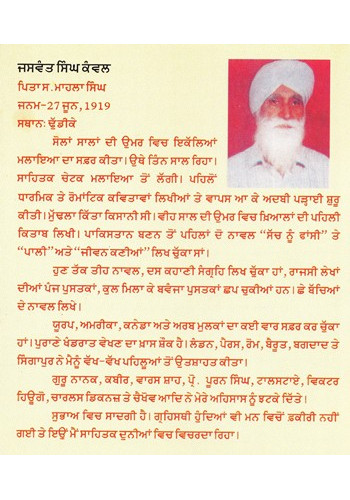 ਜਸਵੰਤ ਸਿੰਘ ਕੰਵਲ
ਪਿਤਾ ਸ. ਮਾਹਲਾ ਸਿੰਘ
ਜਨਮ-27 ਜੂਨ, 1919
ਸਥਾਨ: ਢੁੱਡੀਕੇ
ਸੋਲਾਂ ਸਾਲਾਂ ਦੀ ਉਮਰ ਵਿਚ ਇਕੱਲਿਆਂ
ਮਲਾਇਆ ਦਾ ਸਫ਼ਰ ਕੀਤਾ। ਉਥੇ ਤਿੰਨ ਸਾਲ ਰਿਹਾ।
ਸਾਹਿਤਕ ਚੇਟਕ ਮਲਾਇਆ ਤੋਂ ਲੱਗੀ। ਪਹਿਲੋਂ
ਧਾਰਮਿਕ ਤੇ ਰੋਮਾਂਟਿਕ ਕਵਿਤਾਵਾਂ ਲਿਖੀਆਂ ਤੇ ਵਾਪਸ ਆ ਕੇ ਅਦਬੀ ਪੜ੍ਹਾਈ ਸ਼ੁਰੂ
ਕੀਤੀ। ਮੁੱਢਲਾ ਕਿੱਤਾ ਕਿਸਾਨੀ ਸੀ। ਵੀਹ ਸਾਲ ਦੀ ਉਮਰ ਵਿਚ ਖ਼ਿਆਲਾਂ ਦੀ ਪਹਿਲੀ
ਕਿਤਾਬ ਲਿਖੀ। ਪਾਕਿਸਤਾਨ ਬਣਨ ਤੋਂ ਪਹਿਲਾਂ ਦੋ ਨਾਵਲ "ਸੱਚ ਨੂੰ ਫਾਂਸੀ" ਤੇ
"ਪਾਲੀ" ਅਤੇ "ਜੀਵਨ ਕਣੀਆਂ" ਲਿਖ ਚੁੱਕਾ ਸਾਂ।
ਹੁਣ ਤੱਕ ਤੀਹ ਨਾਵਲ, ਦਸ ਕਹਾਣੀ ਸੰਗ੍ਰਹਿ ਲਿਖ ਚੁੱਕਾ ਹਾਂ, ਰਾਜਸੀ ਲੇਖਾਂ
ਦੀਆਂ ਪੰਜ ਪੁਸਤਕਾਂ, ਕੁਲ ਮਿਲਾ ਕੇ ਬਵੰਜਾ ਪੁਸਤਕਾਂ ਛਪ ਚੁਕੀਆਂ ਹਨ। ਛੇ ਬੱਚਿਆਂ
ਦੇ ਨਾਵਲ ਲਿਖੇ।
ਯੂਰਪ, ਅਮਰੀਕਾ, ਕਨੇਡਾ ਅਤੇ ਅਰਬ ਮੁਲਕਾਂ ਦਾ ਕਈ ਵਾਰ ਸਫ਼ਰ ਕਰ ਚੁੱਕਾ
ਹਾਂ। ਪੁਰਾਣੇ ਖੰਡਰਾਤ ਵੇਖਣ ਦਾ ਖ਼ਾਸ ਸ਼ੌਕ ਹੈ। ਲੰਡਨ, ਪੈਰਸ, ਰੋਮ, ਬੈਰੂਤ, ਬਗਦਾਦ ਤੇ
ਸਿੰਗਾਪੁਰ ਨੇ ਮੈਨੂੰ ਵੱਖ-ਵੱਖ ਪਹਿਲੂਆਂ ਤੋਂ ਉਤਸ਼ਾਹਤ ਕੀਤਾ।
ਗੁਰੂ ਨਾਨਕ, ਕਬੀਰ, ਵਾਰਸ ਸ਼ਾਹ, ਪ੍ਰੋ. ਪੂਰਨ ਸਿੰਘ, ਟਾਲਸਟਾਏ, ਵਿਕਟਰ
ਹਿਊਗੋ, ਚਾਰਲਸ ਡਿਕਨਜ਼ ਤੇ ਚੈਖੋਵ ਆਦਿ ਨੇ ਮੇਰੇ ਅਹਿਸਾਸ ਨੂੰ ਝਟਕੇ ਦਿੱਤੇ।
ਸੁਭਾਅ ਵਿਚ ਸਾਦਗੀ ਹੈ। ਗ੍ਰਹਿਸਥੀ ਹੁੰਦਿਆਂ ਵੀ ਮਨ ਵਿਚੋਂ ਫ਼ਕੀਰੀ ਨਹੀਂ
ਗਈ ਤੇ ਇਉਂ ਮੈਂ ਸਾਹਿਤਕ ਦੁਨੀਆਂ ਵਿਚ ਵਿਚਰਦਾ ਰਿਹਾ।